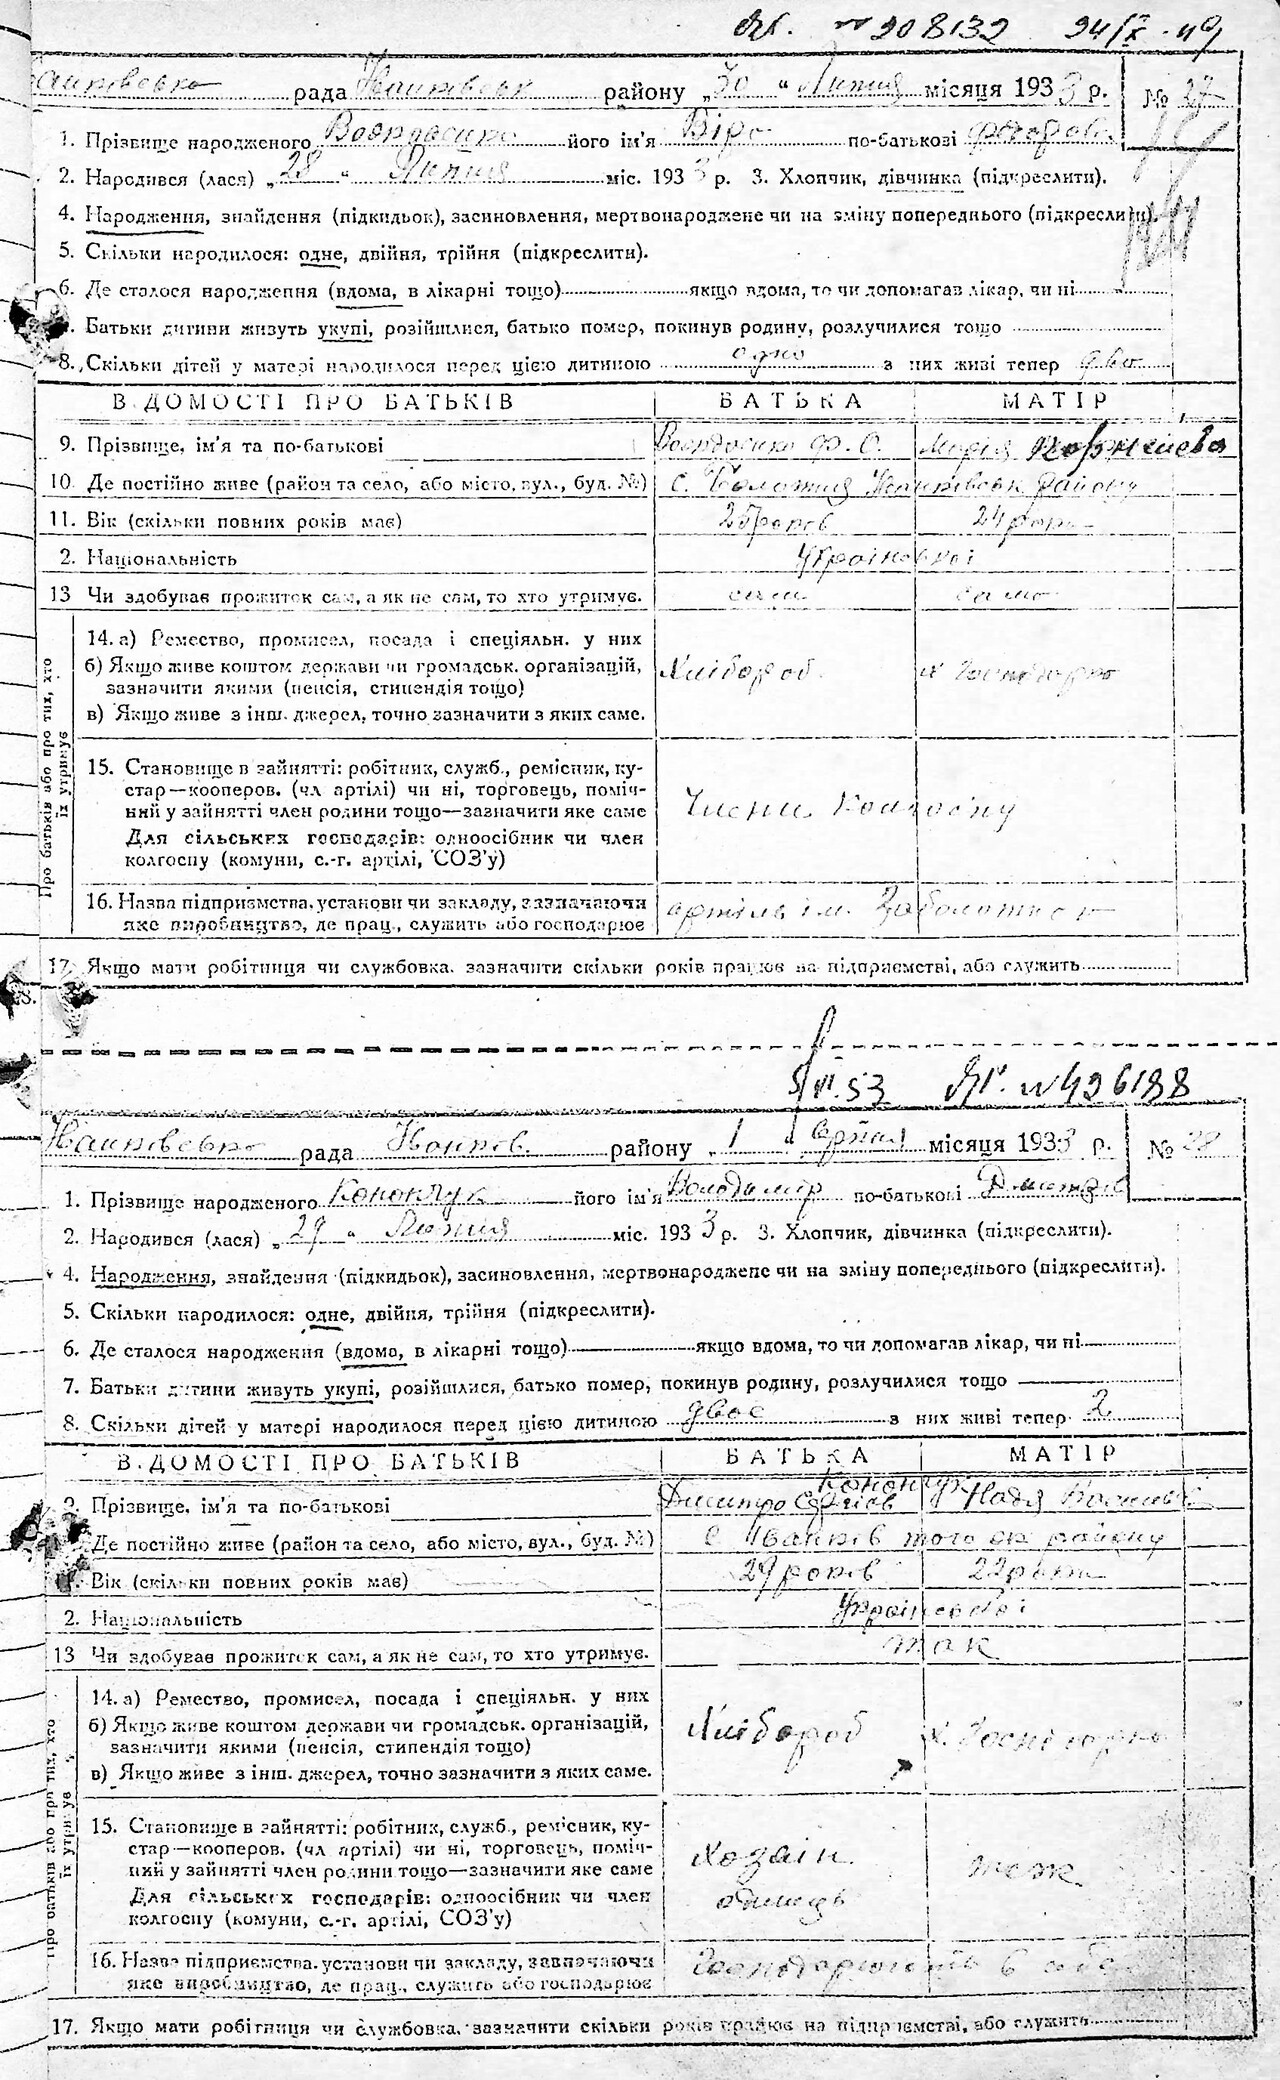 № 208132 24/X-49
рада Іванківськ району „30 “ Липня місяця 1933 р. № 27
1. Прізвище народженого його ім'я Віра по-батькові Федорів.
2. Народився (лася) „28 “ Липня міс. 1933 р. 3. Хлопчик, дівчинка (підкреслити).
4. Народження, знайдення (підкидьок), засиновлення, мертвонароджене чи на зміну попереднього (підкреслити).
5. Скільки народилося: одне, двійня, трійня (підкреслити).
6. Де сталося народження (вдома, в лікарні тощо) якщо вдома, то чи допомагав лікар, чи ні
Батьки дитини живуть укупі, розійшлися, батько помер, покинув родину, розлучилися тощо
8. Скільки дітей у матері народилося перед цією дитиною одно з них живі тепер двоє
В.ДОМОСТІ ПРО БАТЬКІВ БАТЬКА МАТІР
9. Прізвище, ім'я та по-батькові Ф. О. Марія
10. Де постійно живе (район та село, або місто, вул., буд. №) с. Болотня Іванківськ району
11. Вік (скільки повних років має) 25 років 24 роки
2. Національність Української
13 Чи здобуває прожиток сам, а як не сам, то хто утримує. сам сама
Про батьків або про тих, хто їх утримує
14. а) Ремество, промисел, посада і спеціяльн. у них
б) Якщо живе коштом держави чи громадськ. організацій, Хлібороб х господарка
зазначити якими (пенсія, стипендія тощо)
в) Якщо живе з інш. джерел, точно зазначити з яких саме.
15. Становище в зайнятті: робітник, служб., ремісник, ку-
стар—кооперов. (чл артілі) чи ні, торговець, поміч-
ний у зайнятті член родини тощо—зазначити яке саме Члени колгоспу
Для сільських господарів: одноосібник чи член
колгоспу (комуни, с.-г. артілі, СОЗ'у)
16. Назва підприємства, установи чи закладу, зазначаючи артіль ім.
яке виробництво, де прац., служить або господарює
17. Якщо мати робітниця чи службовка, зазначити скільки років працює на підприємстві, або служить
5/VI.53 № 436188
Іванківська рада Іванків. району „1 “ серпня місяця 1933 р. № 28
1. Прізвище народженого Конончук його ім'я Володимір по-батькові Дмитрів
2. Народився (лася) „29 “ Липня міс. 1933 р. 3. Хлопчик, дівчинка (підкреслити).
4. Народження, знайдення (підкидьок), засиновлення, мертвонароджене чи на зміну попереднього (підкреслити).
5. Скільки народилося: одне, двійня, трійня (підкреслити).
6. Де сталося народження (вдома, в лікарні тощо) якщо вдома, то чи допомагав лікар, чи ні
7. Батьки дитини живуть укупі, розійшлися, батько помер, покинув родину, розлучилися тощо
8. Скільки дітей у матері народилося перед цією дитиною двоє з них живі тепер 2
В.ДОМОСТІ ПРО БАТЬКІВ БАТЬКА МАТІР
Конончук
9. Прізвище, ім'я та по-батькові Дмитро Надя
Де постійно живе (район та село, або місто, вул., буд. №) с Іванків того ж району
11. Вік (скільки повних років має) 29 років 22 роки
2. Національність Української
13 Чи здобуває прожиток сам, а як не сам, то хто утримує. так
Про батьків або про тих, хто їх утримує
14. а) Ремество, промисел, посада і спеціяльн. у них
б) Якщо живе коштом держави чи громадськ. організацій, Хлібороб х. господарка
зазначити якими (пенсія, стипендія тощо)
в) Якщо живе з інш. джерел, точно зазначити з яких саме.
15. Становище в зайнятті: робітник, служб., ремісник, ку-
стар—кооперов. (чл артілі) чи ні, торговець, поміч- хозаін теж
ний у зайнятті член родини тощо—зазначити яке саме
Для сільських господарів: одноосібник чи член
колгоспу (комуни, с.-г. артілі, СОЗ'у)
16. Назва підприємства, установи чи закладу, зазначаючи Господарюють в
яке виробництво, де прац., служить або господарює
17. Якщо мати робітниця чи службовка, зазначити скільки років працює на підприємстві, або служить